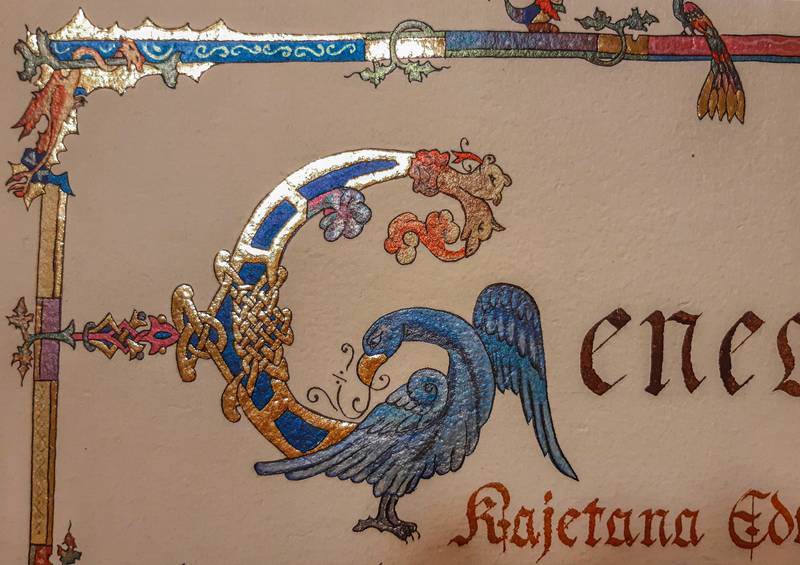 Genec
Kajetana Edw